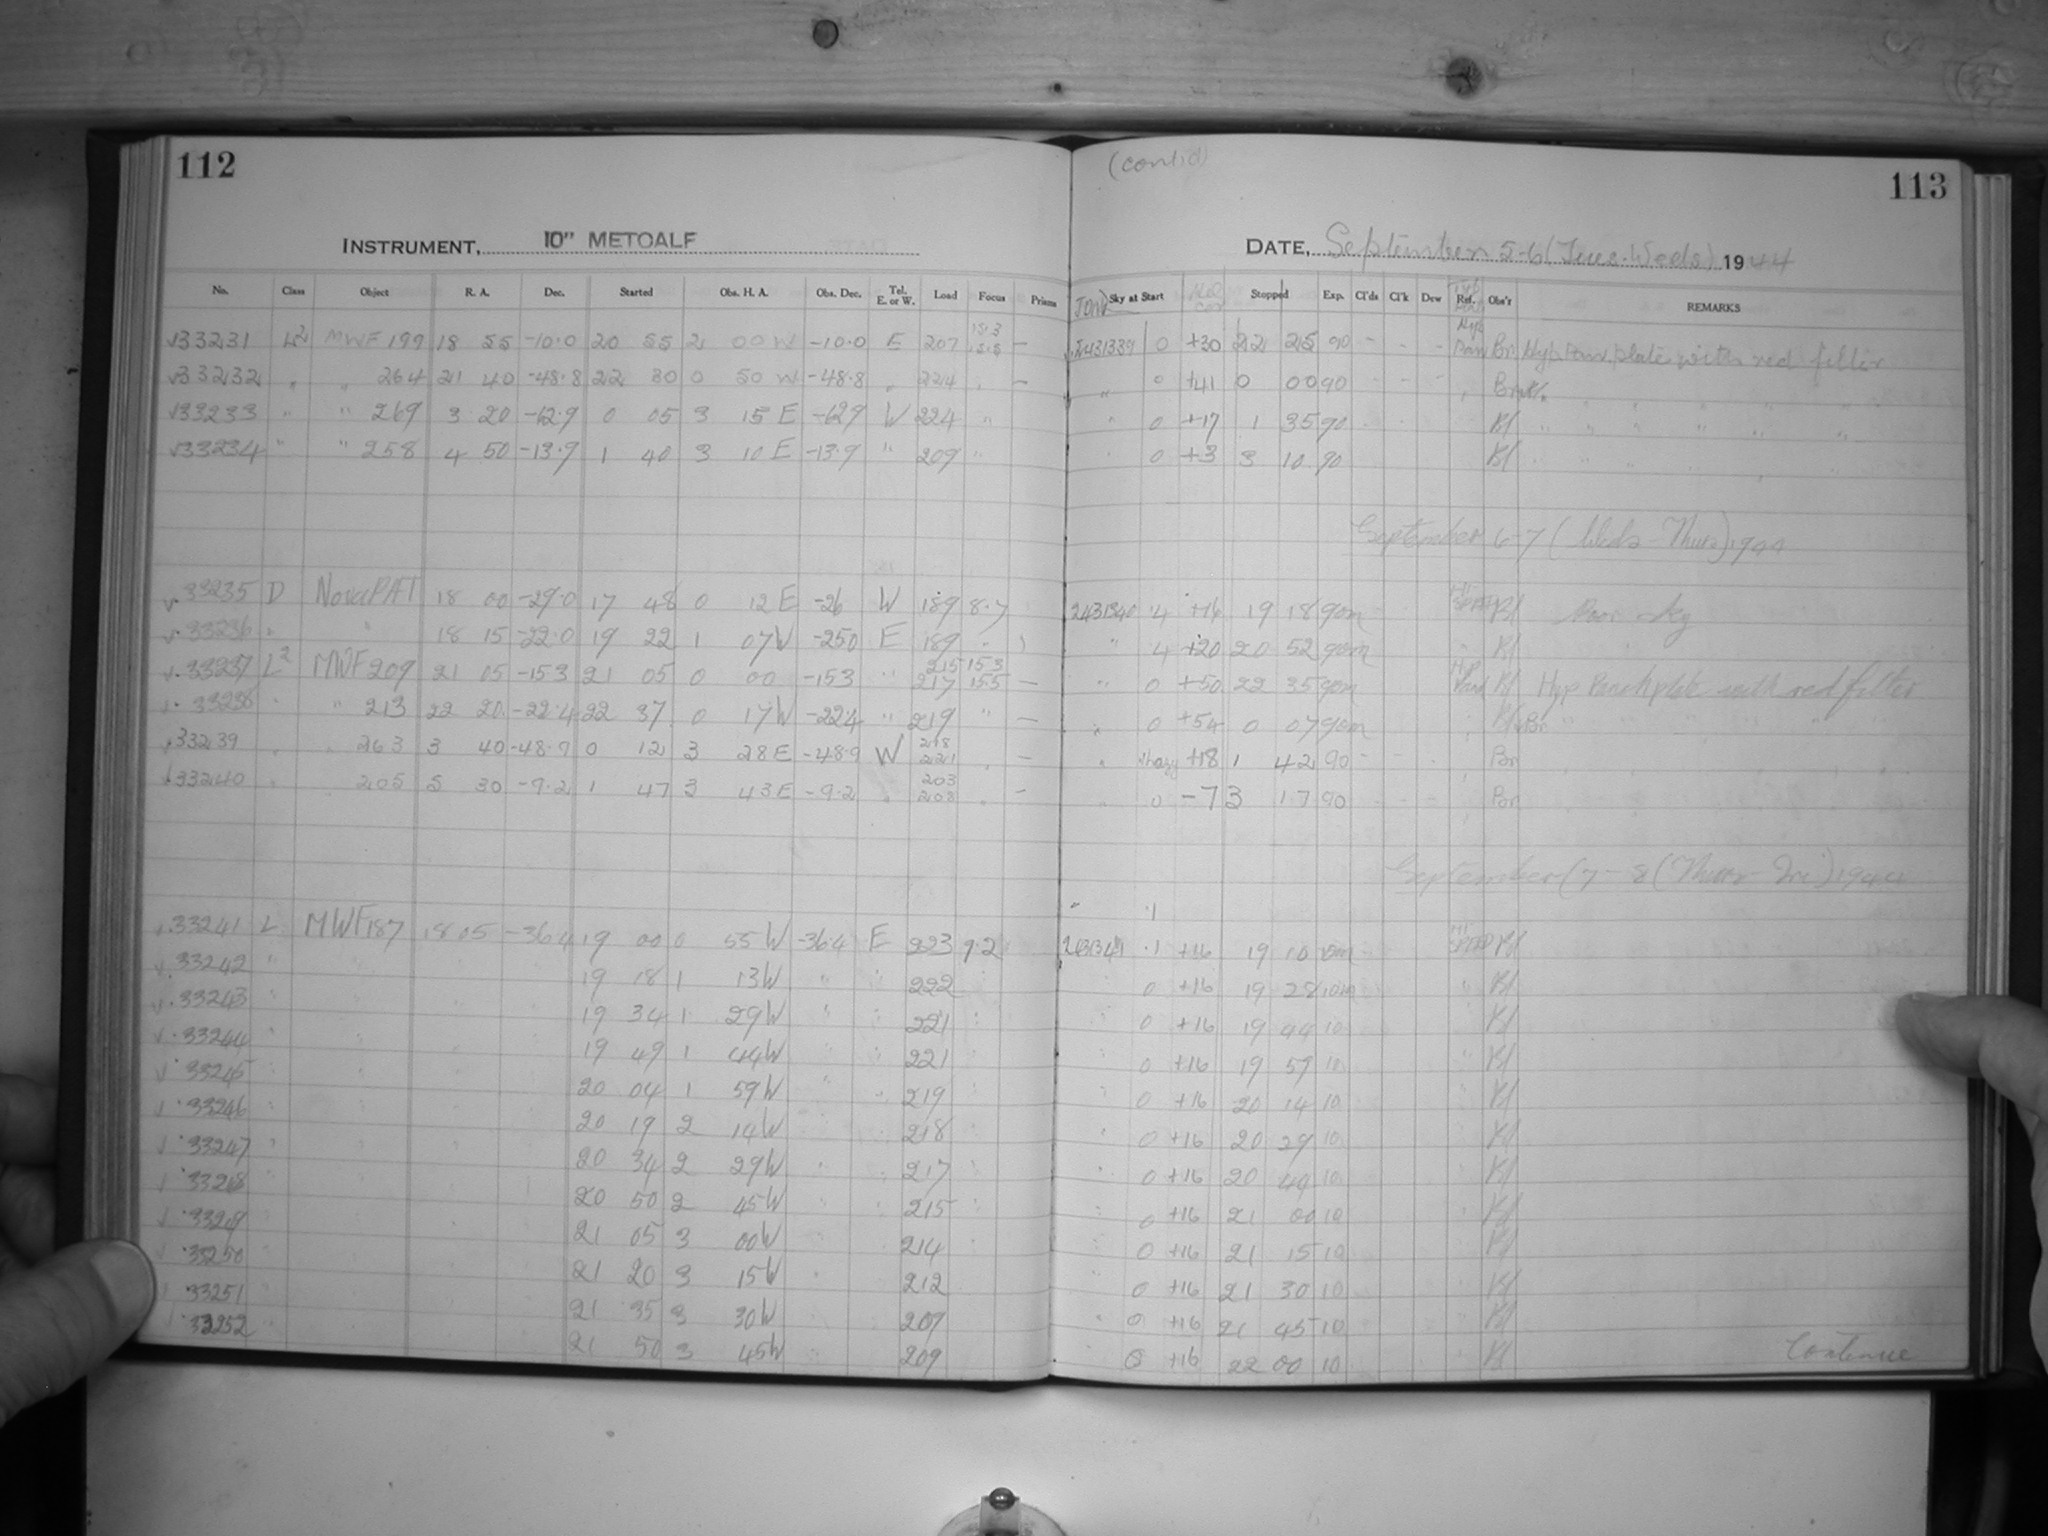 112
INSTRUMENT, 10" METCALF
No. Class Object R. A. Dec. Started Obs. H. A. Obs. Dec. Tel. E. or W. Load Focus Prisms
33231 L2 MWF 199 18 55 -10.0 20 55 2 00 W -10.0 E 207 15.3 15.5 —
33232 " " 264 21 40 -48.8 22 30 0 50 W -48.8 " 224 " —
33233 " " 269 3 20 -62.9 0 05 3 15 E -62.9 W 224 "
33234 " " 258 4 50 -13.9 1 40 3 10 E -13.9 " 209 "
33235 D Nova 18 00 -29.0 17 48 0 12 E -26 W 189 8.7
33236 " " 18 15 -22.0 19 22 1 07 W -250 E 189 "
33237 L2 MWF 209 21 05 -15.3 21 05 0 00 -153 " 215 217 153 155 —
33238 " " 213 22 20 -22.4 22 37 0 17 W -22.4 " 219 " —
33239 " " 263 3 40 -48.9 0 12 3 28 E -48.9 W 218 221 " —
33240 " " 205 5 30 -9.2 1 47 3 43 E -9.2 " 203 208 " —
33241 L MWF 187 18 05 -36.4 19 00 0 55 W -36.4 E 223 9.2
33242 " 19 18 1 13 W " 222
33243 " 19 34 1 29 W " " 221 "
33244 " 19 49 1 44 W " 221
33245 " 20 04 1 59 W " " 219 "
33246 " 20 19 2 14 W " 218
33247 " 20 34 2 29 W " 217
33248 20 50 2 45 W " 215 "
33249 21 05 3 00 W 214
33250 21 20 3 15 W " 212
33251 21 35 3 30 W 207
33252 21 50 3 45 W 209
(cont'd)
113
DATE, September 5-6 (Tues-Weds) 1944
Sky at Start Stopped Exp. Cl'ds Cl'k Dew Ref. Obs'r REMARKS
2431339 0 +30 22 25 90 - - - Br Hyp Pan. plate with red filter
" 0 +41 0 00 90 - - - "
" 0 +17 1 35 90 Bl " " " " " "
" 0 +3 3 10 90 Bl " " " " " "
September 6-7 (Weds-Thurs) 1944
2431340 4 +16 19 18 90m Bl Poor sky
" 4 +20 20 52 90m " Bl
" 0 +50 22 35 90m Bl Hyp Panch plate with red filter
" 0 +54 0 07 90m "
" hazy +18 1 42 90 - - Br
" 0 -7 3 17 90 - - - Br
September (7-8 (Thurs-Fri) 1944
2431341 1 +16 19 10 10m Bl
0 +16 19 28 10m " Bl
0 +16 19 44 10 Bl
0 +16 19 59 10 " Bl
0 +16 20 14 10 Bl
0 +16 20 29 10 Bl
0 +16 20 44 10 Bl
0 +16 21 00 10 Bl
0 +16 21 15 10 Bl
0 +16 21 30 10 Bl
0 +16 21 45 10 Bl
0 +16 22 00 10 Bl
Continue